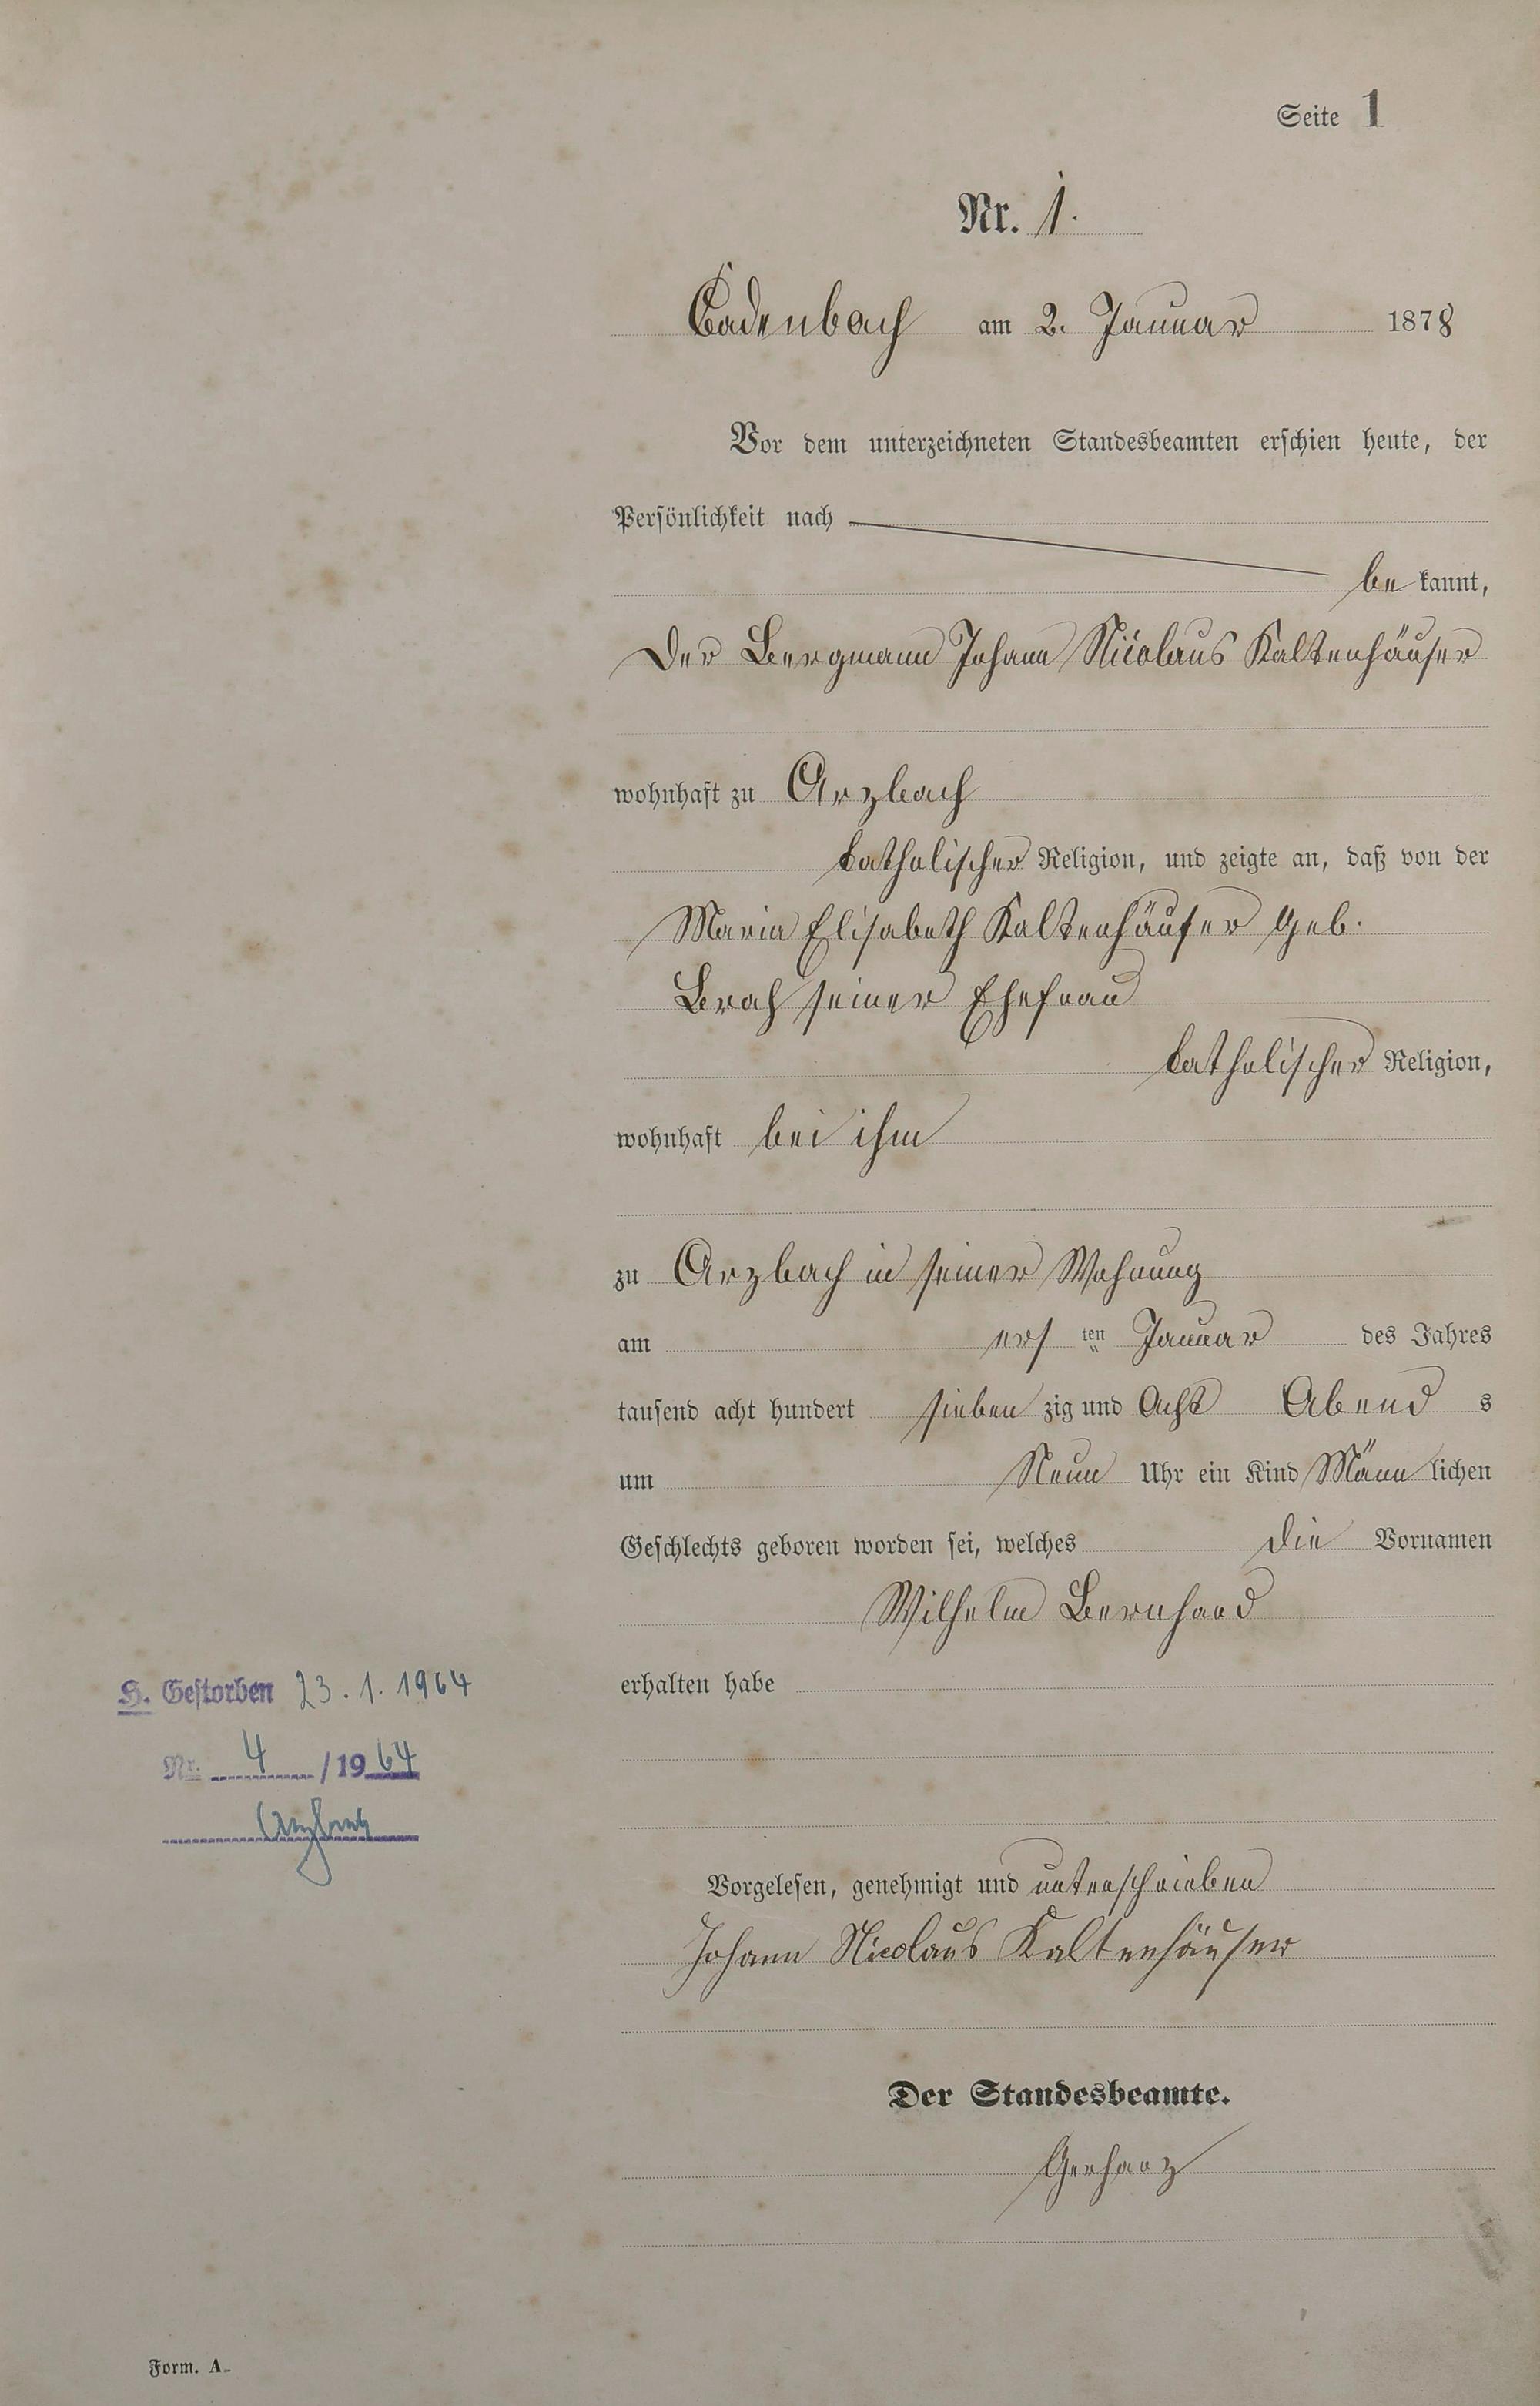 Seite 1
Nr. 1.
Cadenbach am 2. Januar 1878
Vor dem unterzeichneten Standesbeamten erschien heute, der
Persönlichkeit nach
be kannt,
Der Bergmann Johann Nicolaus Kaltenhäuser
wohnhaft zu Arzbach
katholischer Religion, und zeigte an, daß von der
Maria Elisabeth Kaltenhäuser geb.
Brach seiner Ehefrau
katholischer Religion,
wohnhaft bei ihm
zu Arzbach in seiner Wohnung
am ers ten Januar des Jahres
tausend acht hundert sieben zig und Acht Abend s
um Neun Uhr ein Kind Männ lichen
Geschlechts geboren worden sei, welches die Vornamen
Wilhelm Bernhard
erhalten habe
H. Gestorben 23.1.1964
Nr. 4 / 19 64
Arzbach
Vorgelesen, genehmigt und unterschrieben
Johann Nicolaus Kaltenhäuser
Der Standesbeamte.
Gerharz
Form. A.